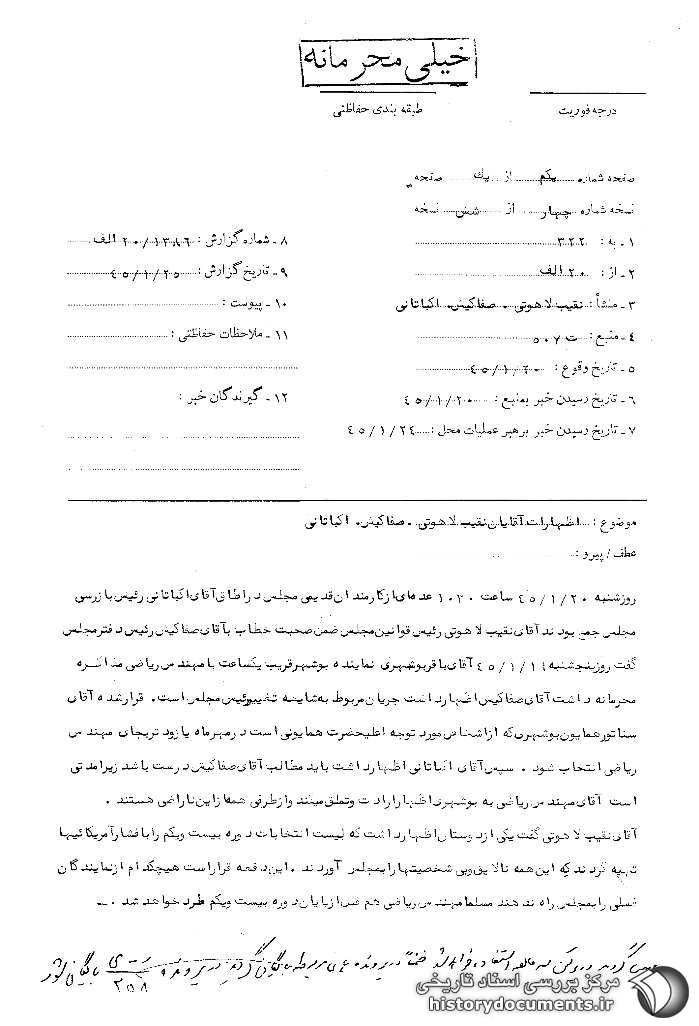 خیلی محرمانه
طبقه بندی حفاظتی
درجه فوریت
صفحه شماره یکم از یک صفحه
نسخه شماره چهار از شش نسخه
۱ـ به : ۳۲۲
۲ـ از : ۲۰ الف
۳ـ منشأ : نقیب لاهوتی . صفاکیش. اکباتانی
۴ـ منبع : ت ۵۰۷
۵ـ تاریخ وقوع : ۴۵/۱/۲۰
۶ـ تاریخ رسیدن خبر بمنبع : ۴۵/۱/۲۰
۷ـ تاریخ رسیدن خبر برهبر عملیات محل : ۴۵/۱/۲۴
۸ـ شماره گزارش : ۲۰/۱۳۸۶ الف
۹ـ تاریخ گزارش : ۴۵/۱/۲۵
۱۰ـ پیوست :
۱۱ـ ملاحظات حفاظتی :
۱۲ـ گیرندگان خبر :
موضوع : اظهارات آقایان نقیب لاهوتی . صفاکیش. اکباتانی
عطف/پیرو :
روزشنبه ۴۵/۱/۲۰ ساعت ۱۰۳۰ عده‌ای از کارمندان قدیمی مجلس در اطاق آقای اکباتانی رئیس بازرسی
مجلس جمع بودند آقای نقیب لاهوتی رئیس قوانین مجلس ضمن صحبت خطاب بآقای صفاکیش رئیس دفتر مجلس
گفت روز پنجشنبه ۴۵/۱/۱۱ آقای باقر بوشهری نماینده بوشهر قریب یکساعت با مهندس ریاضی مذاکره
محرمانه داشت آقای صفاکیش اظهار داشت جریان مربوط به شایعه تغییر رئیس مجلس است. قرار شده آقای
سناتور همایون بوشهری که از اشخاص مورد توجه اعلیحضرت همایونی است در مهرماه یا زودتر بجای مهندس
ریاضی انتخاب شود . سپس آقای اکباتانی اظهار داشت باید مطالب آقای صفاکیش درست باشد زیرا مدتی
است آقای مهندس ریاضی به بوشهری اظهار ارادت و تملق میکند و از طرفی همه از این ناراضی هستند .
آقای نقیب لاهوتی گفت یکی از دوستان اظهار داشت که لیست انتخابات دوره بیست ویکم را با فشار آمریکائیها
تهیه کردند که این همه نالایق وبی شخصیتها را بمجلس آوردند . این دفعه قرار است هیچکدام از نمایندگان
فعلی را بمجلس راه ندهند مسلما مهندس ریاضی هم قبل از پایان دوره بیست ویکم طرد خواهد شد .
استفاده خواهد شد ضمناً در پرونده بایگانی گردد در پرونده ۲۵۸ بایگانی شود
مرکز بررسی اسناد تاریخی
historydocuments.ir